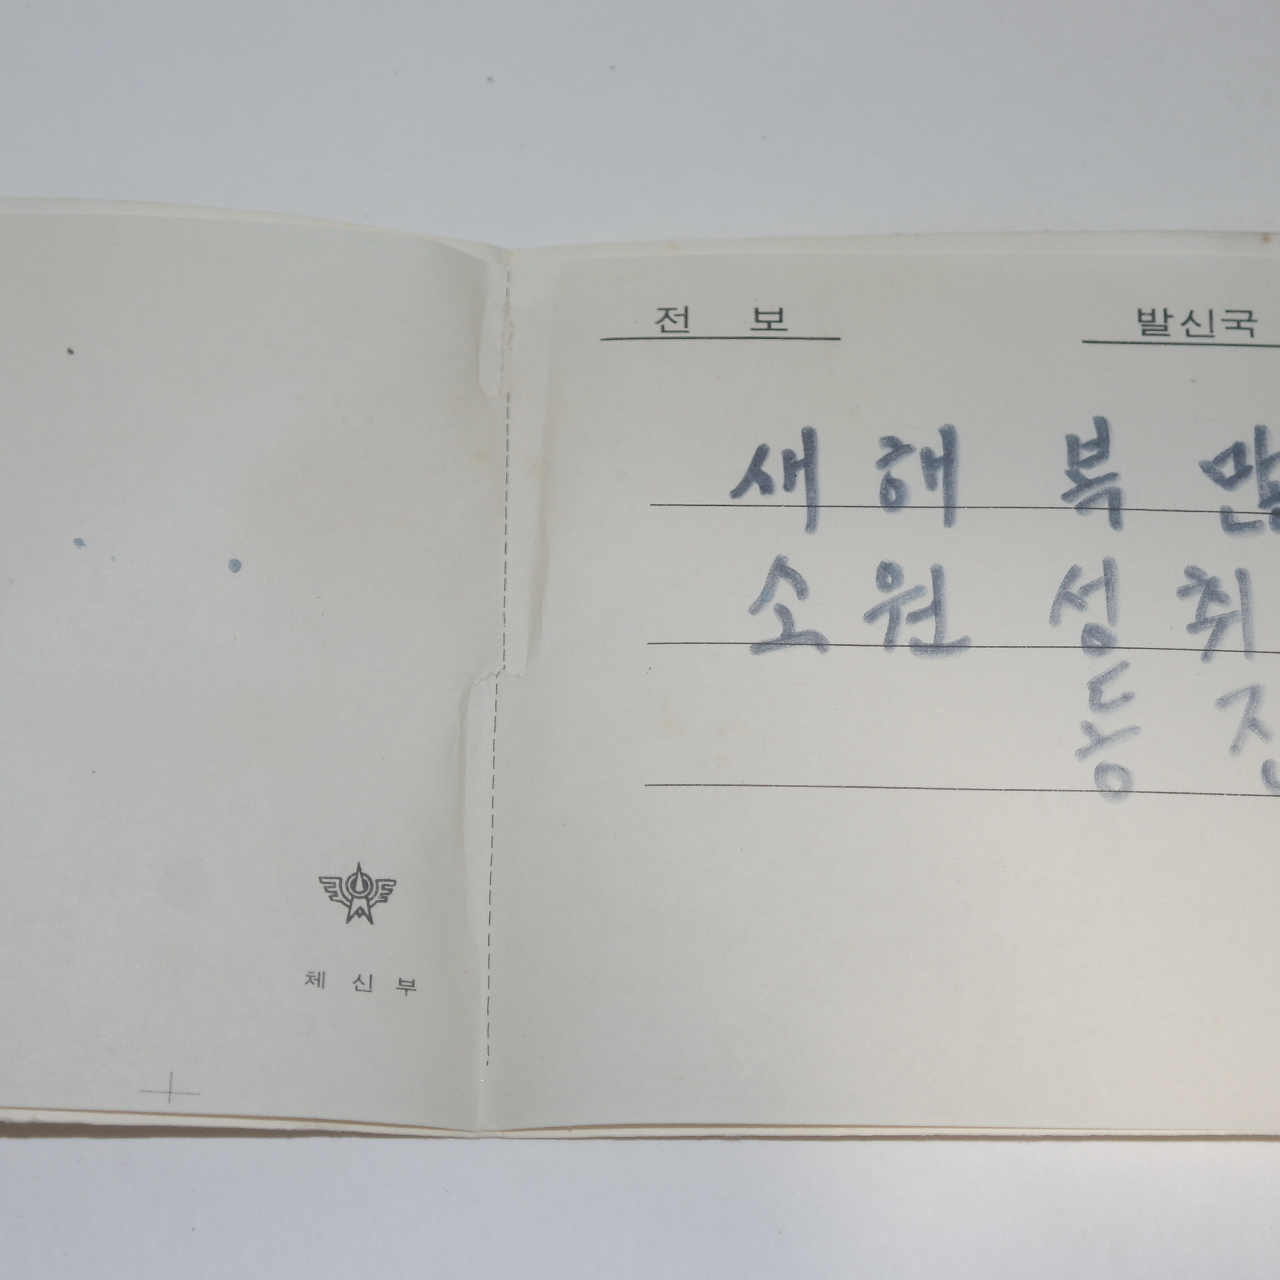 전 보
발신국
새해 복 많
소원 성취
동
체신부